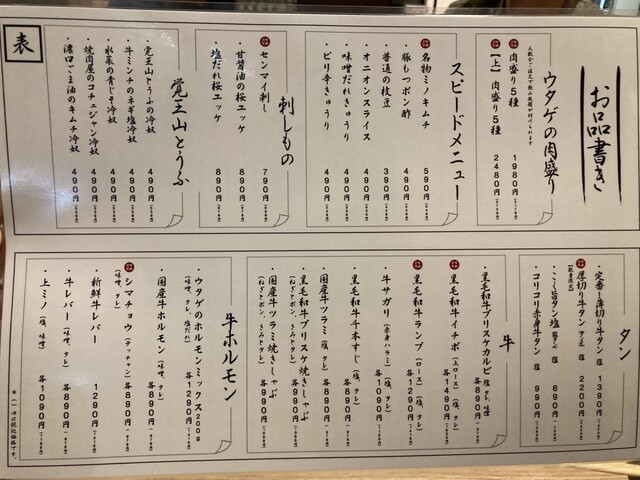 表
お品書き
ウタゲの肉盛り
肉盛り5種 1980円
【上】肉盛り5種 2480円
スピードメニュー
名物ミノキムチ 590円
豚もつポン酢 490円
普通の枝豆 390円
オニオンスライス 490円
味噌だれきゅうり 490円
ピリ辛きゅうり 490円
刺しもの
センマイ刺し 790円
甘醤油の桜ユッケ 890円
塩だれ桜ユッケ 890円
覚王山とうふ
覚王山とうふの冷奴 490円
牛ミンチのネギ塩冷奴 490円
水菜の青じそ冷奴 490円
焼肉屋のコチュジャン冷奴 490円
濃口ごま油のキムチ冷奴 490円
タン
定番!薄切り牛タン 塩 1390円
厚切り牛タン 塩 2200円
こく旨タン塩 690円
コリコリ赤身牛タン 塩 990円
牛
黒毛和牛ブリスケカルビ 塩、タレ、味噌 各890円
黒毛和牛イチボ(上ロース)(塩、タレ) 各1490円
黒毛和牛ランプ(ロース)(塩、タレ) 各1290円
牛サガリ(赤身ハラミ)(塩、タレ) 各1090円
黒毛和牛千本すじ(塩、タレ) 各890円
国産牛ツラミ(塩、タレ) 各890円
黒毛和牛ブリスケ焼きしゃぶ 各990円
(ねぎとポン、きみとタレ)
国産牛ツラミ焼きしゃぶ 各990円
(ねぎとポン、きみとタレ)
牛ホルモン
ウタゲのホルモンミックス200g 各1290円
(味噌、タレ、塩だれ)
国産牛ホルモン(味噌、タレ) 各890円
シマチョウ(テッチャン) 各890円
(味噌、タレ)
新鮮牛レバー 1290円
牛レバー(味噌、タレ) 各890円
上ミノ(塩、味噌) 各1090円
※( )内は税込価格です。